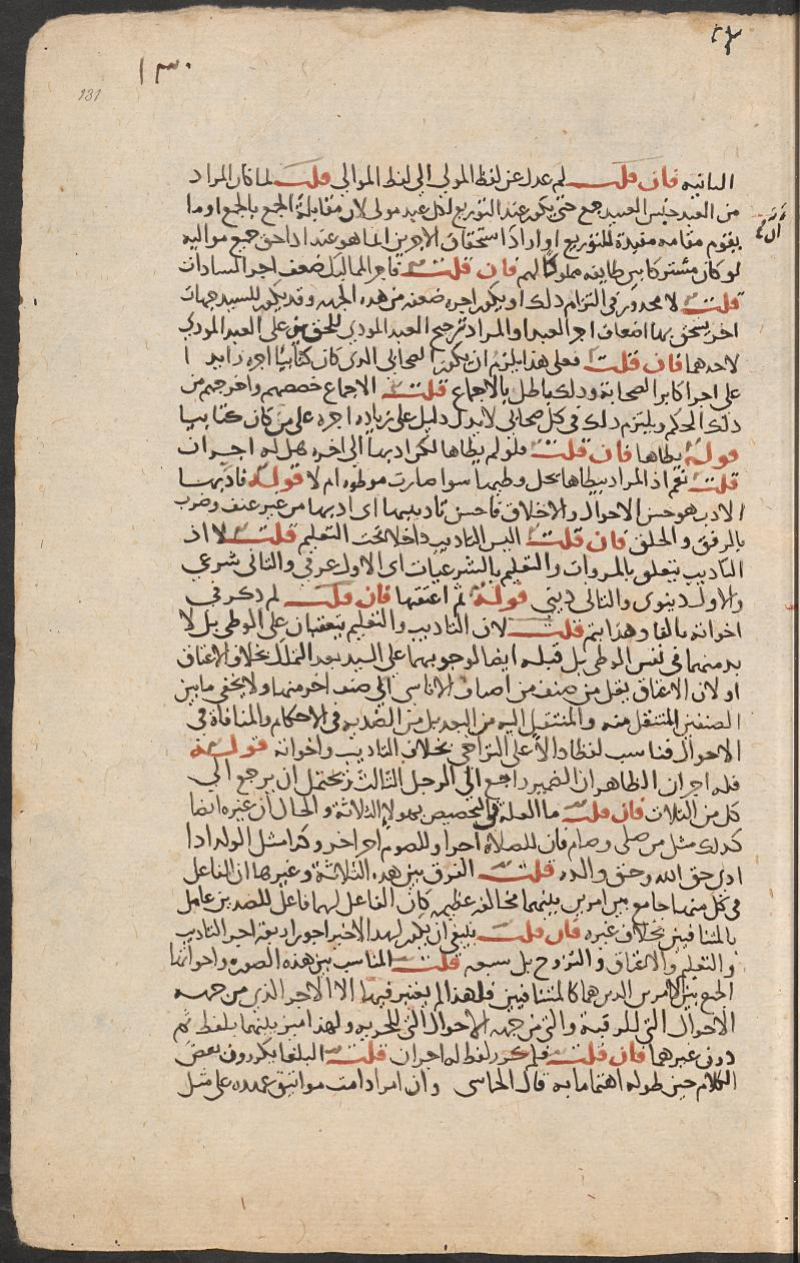 ٢٣
١٣٠
131
الثانيه فان قلت لم عدل عن لفظ المولى الى لفظ الموالي قلت لما كان المراد
من العبد جنس العبيد جمع حتى يكون عند التوزيع لكل عبد مولى لان مقابلة الجمع بالجمع او ما
يقوم مقامه مفيدة للتوزيع او اراد ان استحقاق الاجرين انما هو عند اداحق جميع مواليه
لو كان مشتركا بين طايفه مملوكا لهم فان قلت فاجر المماليك ضعف اجر السادات
قلت لا محذور في التزام ذلك او يكون اجره ضعفه من هذه الجهه وقد يكون للسيد جهات
اخر يستحق بها اضعاف اجر العبد او المراد ترجيح العبد المودي للحقين على العبد المودي
لاحدهما فان قلت فعلى هذا يلزم ان يكون الصحابي الذي كان كتابيا اجره زايد ا
على اجر اكابر الصحابة وذلك باطل بالاجماع قلت الاجماع خصصهم واخرجهم من
ذلك الحكم ويلتزم ذلك في كل صحابي لا يدل دليل على زياده اجره على من كان كتابيا
قوله يطاها فان قلت فلو لم يطاها لكن ادبها الى اخره هل له اجران
قلت نعم اذ المراد بيطاها يحل وطيها سوا صارت موطوه ام لا قوله فادبها
الادب هو حسن الاحوال والاخلاق فاحسن تاديبها اى ادبها من غير عنف وضرب
بالرفق والخلق فان قلت اليس التاديب داخلا تحت التعليم قلت لا اذ
التاديب يتعلق بالمروات والتعليم بالشرعيات اى الاول عرفي والثاني شرعي
والاول دينوى والثاني ديني قوله ثم اعتقها فان قلت لم ذكر في
اخواته بالفا وهذا بثم قلت لان التاديب والتعليم يتعقبان على الوطي بل لا
بد منهما في نفس الوطي بل قبله ايضا لوجوبهما على السيد بعد التملك بخلاف الاعتاق
او لان الاعتاق نقل من صنف من اصناف الاناسي الى صنف اخر منها ولا يخفى ما بين
الصنفين المنتقل منه والمنتقل اليه من البعد بل من الضديه في الاحكام والمنافاة في
الاحوال فناسب لفظا دالا على التراخي بخلاف التاديب واخواته قوله
فله اجران الظاهر ان الضمير راجع الى الرجل الثالث ويحتمل ان يرجع الى
كل من الثلاث فان قلت ما العله في التخصيص بهولا الثلاثة والحال ان غيره ايضا
كذلك مثل من صلى وصام فان للصلاة اجرا وللصوم اجر اخر وكذا مثل الولد اذا
ادى حق الله وحق والده قلت الفرق بين هذه الثلاثة وغيرها ان الفاعل
في كل منها جامع بين امرين بينهما مخالفه عظيمه كان الفاعل لهما فاعل للضدين عامل
بالمتنافيين بخلاف غيره فان قلت ينبغي ان يكون لهذا الاخير اجور اربعه اجر التاديب
والتعليم والاعتاق والتزوج بل سبعه قلت المناسب بين هذه الصوره واخواتها
الجمع بين الامرين الذين هما كالمتنافيين فلهذا لم يعتبر فيها الا الاجر الذي من جهه
الاحوال التي للرقية والتي من جهه الاحوال التي للحريه ولهذا ميز بينهما بلفظ ثم
دون غيرهما فان قلت فلم كرر لفظ له اجران قلت البلغا يكررون بعض
الكلام حين طوله اهتماما به قال الحماسي وان امرا دامت مواثيق عهده على مثل